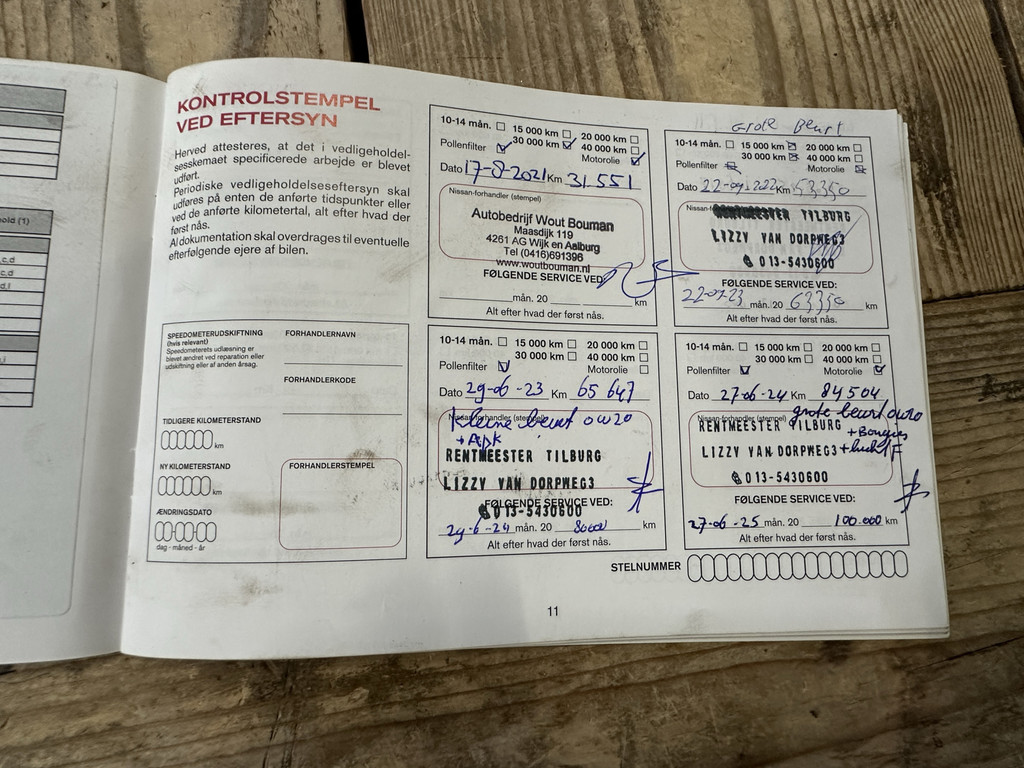 hold (1)
c,d
c,d
d,l
KONTROLSTEMPEL
VED EFTERSYN
Herved attesteres, at det i vedligeholdel-
sesskemaet specificerede arbejde er blevet
udført.
Periodiske vedligeholdelseseftersyn skal
udføres på enten de anførte tidspunkter eller
ved de anførte kilometertal, alt efter hvad der
først nås.
Al dokumentation skal overdrages til eventuelle
efterfølgende ejere af bilen.
SPEEDOMETERUDSKIFTNING
(hvis relevant)
Speedometerets udlæsning er
blevet ændret ved reparation eller
udskiftning af en anden årsag.
FORHANDLERNAVN
FORHANDLERKODE
TIDLIGERE KILOMETERSTAND
km
NY KILOMETERSTAND
km
ÆNDRINGSDATO
dag - måned - år
FORHANDLERSTEMPEL
10-14 mån. 15 000 km 20 000 km
30 000 km 40 000 km
Pollenfilter Motorolie
Dato 17-8-2021 Km 31.551
Nissan-forhandler (stempel)
Autobedrijf Wout Bouman
Maasdijk 119
4261 AG Wijk en Aalburg
Tel (0416)691396
www.woutbouman.nl
FØLGENDE SERVICE VED:
mån. 20 km
Alt efter hvad der først nås.
Grote Beurt
10-14 mån. 15 000 km 20 000 km
30 000 km 40 000 km
Pollenfilter Motorolie
Dato Km 53350
RENTMEESTER TILBURG
LIZZY VAN DORPWEG3
013-5430600
FØLGENDE SERVICE VED:
22-07-23 mån. 20 63350 km
Alt efter hvad der først nås.
10-14 mån. 15 000 km 20 000 km
30 000 km 40 000 km
Pollenfilter Motorolie
Dato 29-06-23 Km 65647
Nissan-forhandler (stempel)
kleine beurt 0W20
+ APK
RENTMEESTER TILBURG
LIZZY VAN DORPWEG3
013-5430600
FØLGENDE SERVICE VED:
29-6-24 mån. 20 80000 km
Alt efter hvad der først nås.
10-14 mån. 15 000 km 20 000 km
30 000 km 40 000 km
Pollenfilter Motorolie
Dato 27-06-24 Km 84504
Nissan-forhandler (stempel)
grote beurt 0W20
RENTMEESTER TILBURG
+ Bougies
LIZZY VAN DORPWEG3 + lucht F
013-5430600
FØLGENDE SERVICE VED:
27-06-25 mån. 20 100.000 km
Alt efter hvad der først nås.
STELNUMMER
11